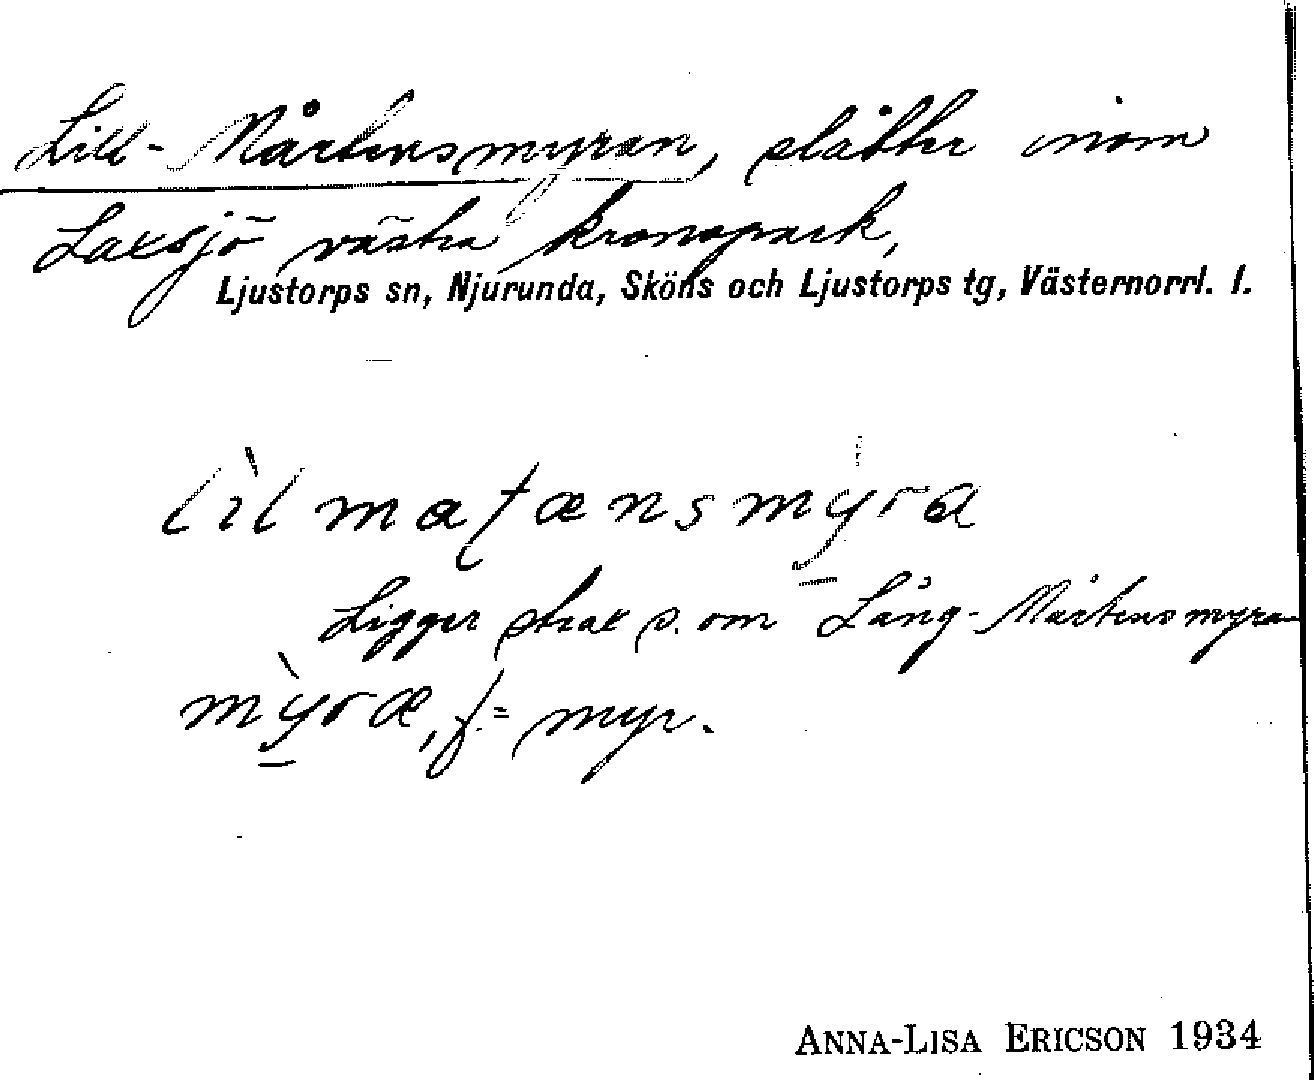 Lill-Mårtensmyran, slåtter inom
Laxsjö västra kronopark,
Ljustorps sn, Njurunda, Sköns och Ljustorps tg, Västernorrl. l.
lìlmaʈænsmy̱ra
Ligger strax s. om Lång-Mårtensmyran
mỳ̱ræ, f. = myr.
ANNA-LISA ERICSON 1934